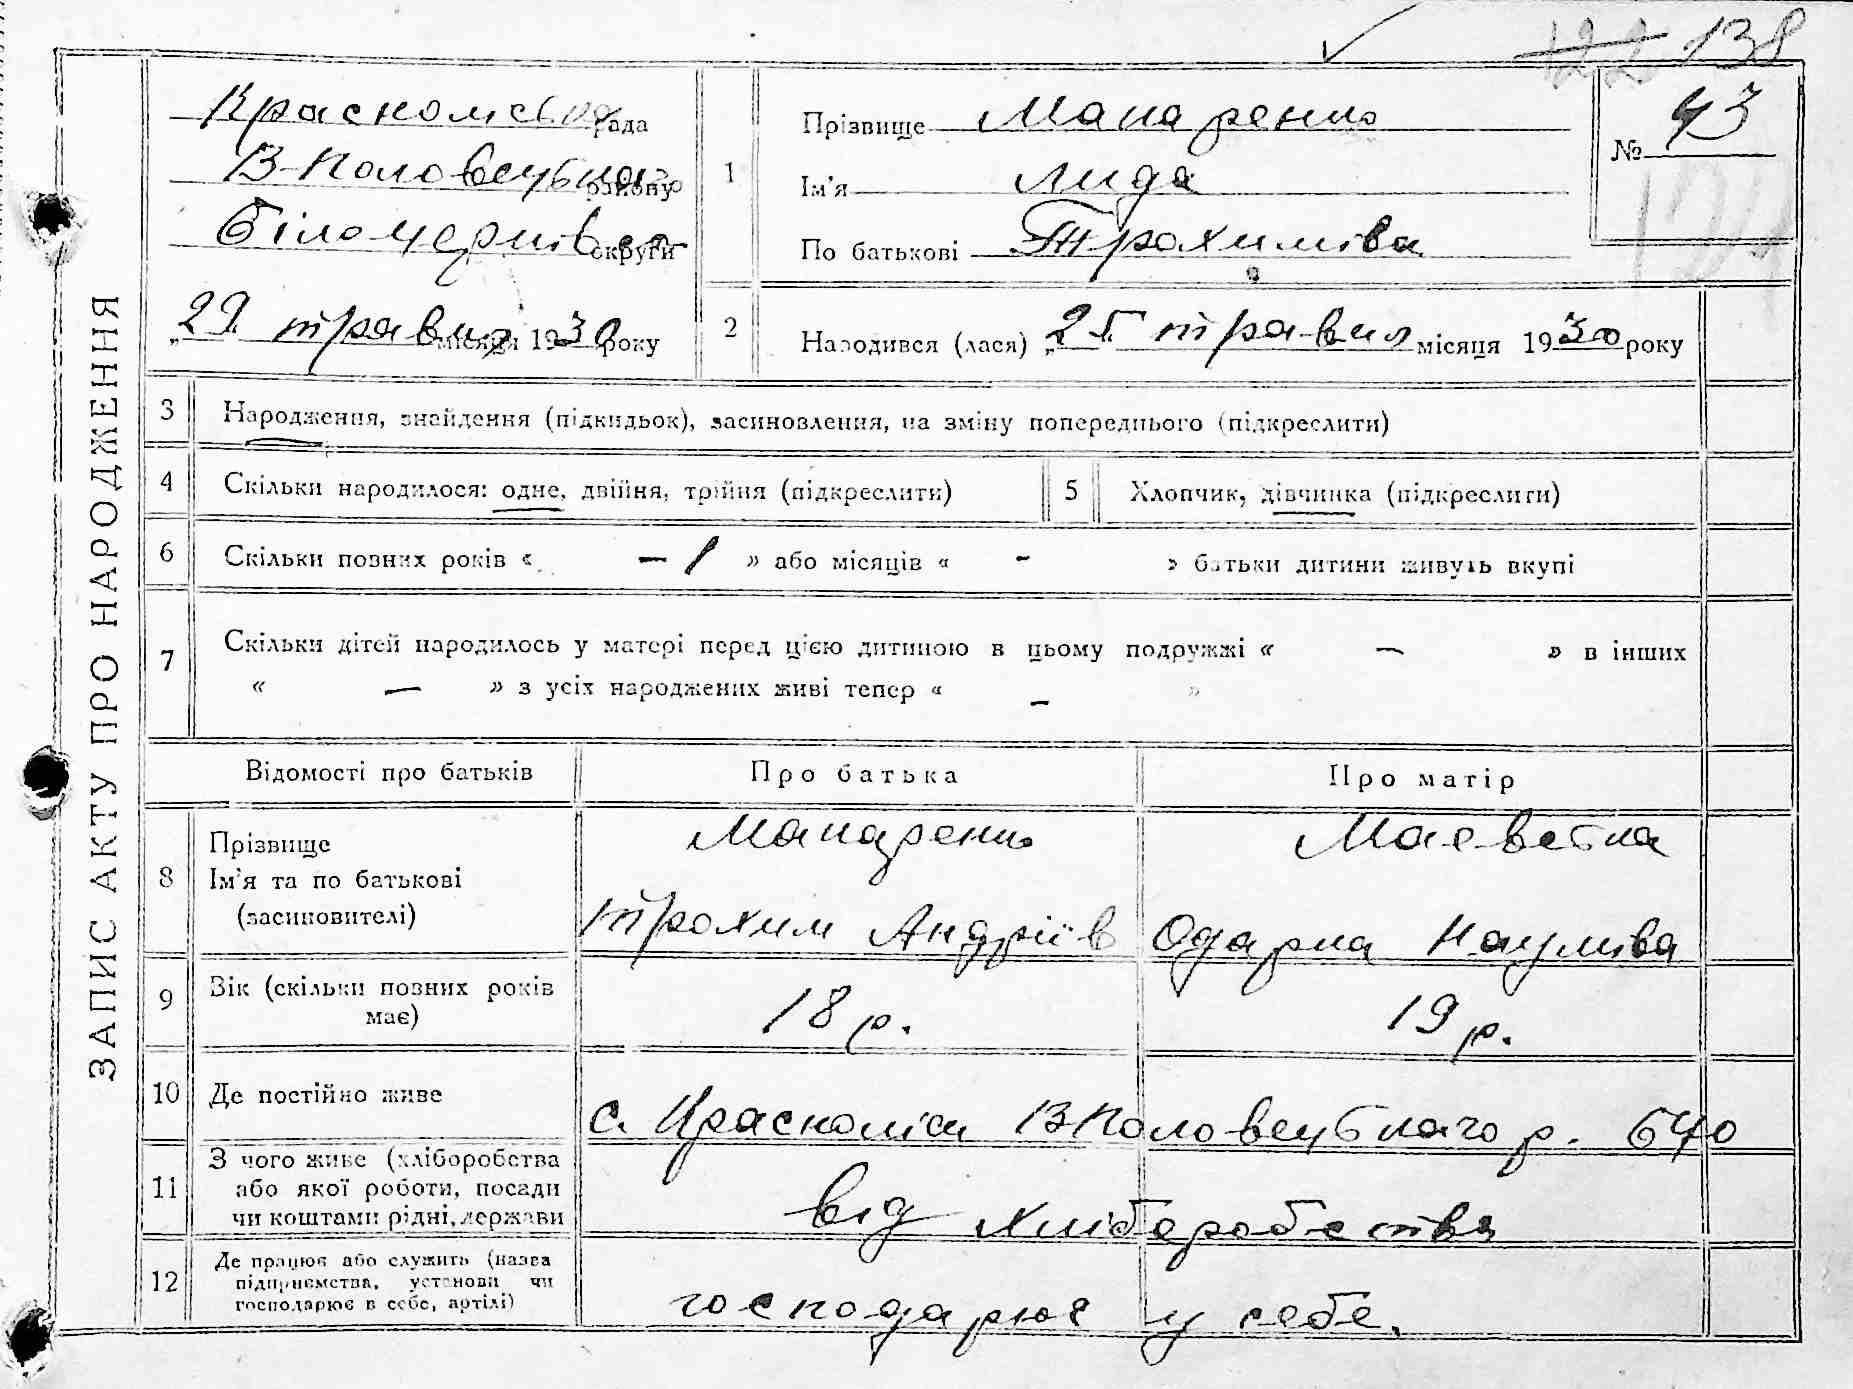 122 138
ЗАПИС АКТУ ПРО НАРОДЖЕННЯ
рада
району
Білоцерківс округи
„29 травня місяця 1930 року
1
Прізвище Макаренко
Ім'я Лида
По батькові Трохимівна
№ 43
2
Народився (лася) „25 травня місяця 1930 року
3 Народження, знайдення (підкидьок), засиновлення, на зміну попереднього (підкреслити)
4 Скільки народилося: одне, двійня, трійня (підкреслити)
5 Хлопчик, дівчинка (підкреслити)
6 Скільки повних років « – 1 » або місяців « - » батьки дитини живуть вкупі
7 Скільки дітей народилось у матері перед цією дитиною в цьому подружжі « – » в інших
« – » з усіх народжених живі тепер « – »
Відомості про батьків
Про батька
Про матір
8 Прізвище
Ім'я та по батькові
(засиновителі)
Макаренко
Трохим Андріїв
Маєвська
Одарка Наумівна
9 Вік (скільки повних років
має)
18 р.
19 р.
10 Де постійно живе
с. Красноліси В Половецького р. БЦО
11 З чого живе (хліборобства
або якої роботи, посади
чи коштами рідні, держави
від хліборобства
12 Де працює або служить (назва
підприємства, установи чи
господарює в себе, артілі)
господарює у себе.